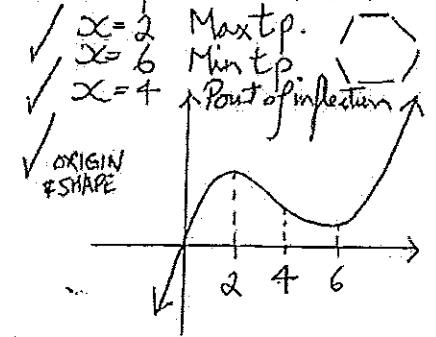 ✓ x=2 Max tp.
✓ x=6 Min tp
✓ x=4 Point of inflection
✓ ORIGIN
& SHAPE
2 4 6